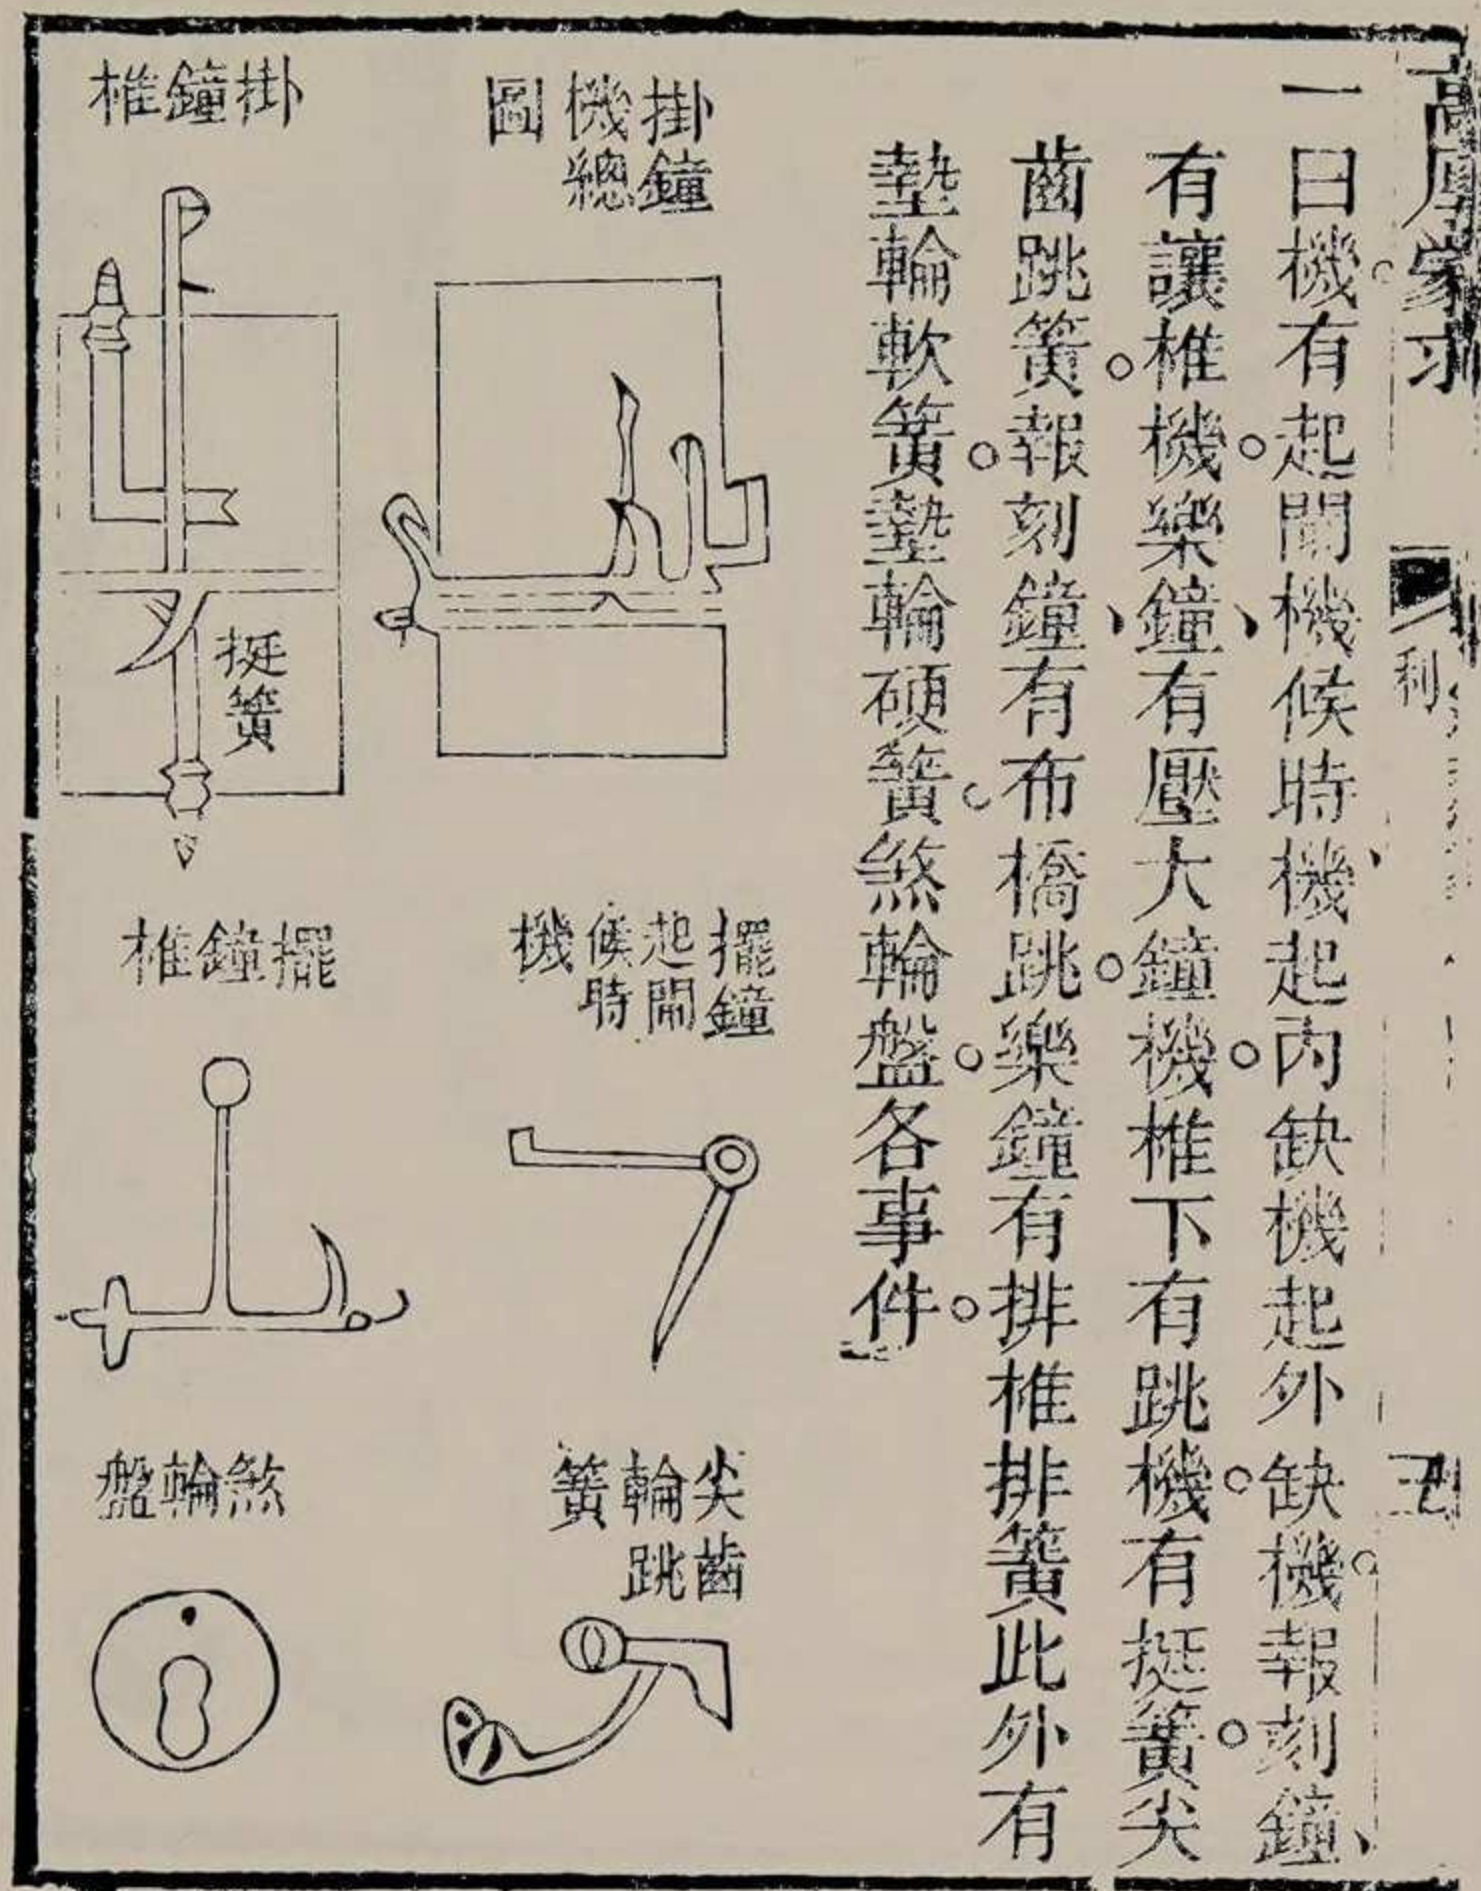 高厚蒙求
利
一曰機有起閘機候時機起內缺機起外缺機報刻鐘、
有讓椎機。樂鐘、有壓大鐘機椎下有跳機。有挺簧。尖
齒跳簧。報刻鐘、有布橋跳。樂鐘有排椎排簧此外有
墊輪軟簧。墊輪硬簧。煞輪盤。各事件。
掛鐘
機總
圖
掛鐘椎
挺簧
擺鐘
起閘
候時
機
擺鐘椎
尖齒
輪跳
簧
煞輪盤